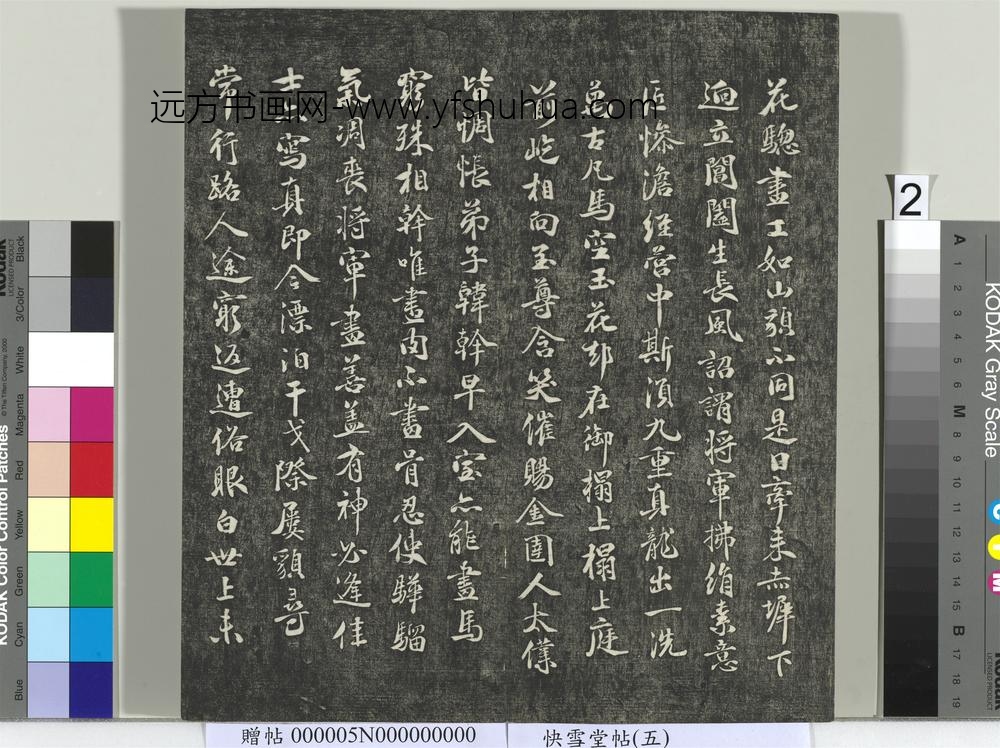 花驄畫工如山貌不同是日牽来赤墀下
迥立閶闔生長風詔謂將軍拂絹素意
匠慘澹經營中斯須九重真龍出一洗
萬古凡馬空玉花却在御榻上榻上庭
前屹相向至尊含笑催賜金圉人太僕
皆惆悵弟子韓幹早入室亦能畫馬
窮殊相幹唯畫肉不畫骨忍使驊騮
氣凋喪將軍畫善蓋有神必逢佳
士亦寫真即今漂泊干戈際屡貌尋
常行路人途窮返遭俗眼白世上未
远方书画网-www.yfshuhua.com
2
贈帖 000005N000000000
快雪堂帖(五)
KODAK Color Control Patches
© The Tiffen Company, 2000
Kodak
LICENSED PRODUCT
Blue
Cyan
Green
Yellow
Red
Magenta
White
3/Color
Black
KODAK Gray Scale
C
Y
M
A
1
2
3
4
5
6
M
8
9
10
11
12
13
14
15
B
17
18
19
Kodak
LICENSED PRODUCT